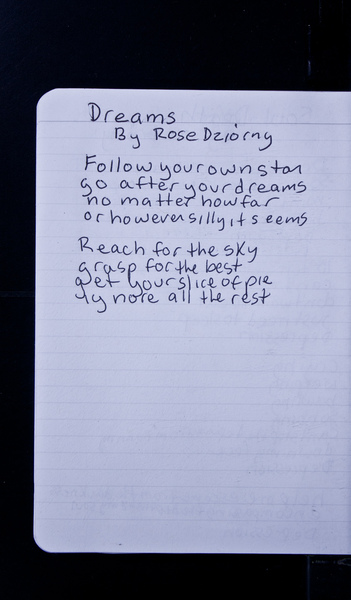 Dreams
By Rose Dziorny
Follow your own star
go after your dreams
no matter how far
or however silly it seems
Reach for the sky
grasp for the best
get your slice of pie
ignore all the rest